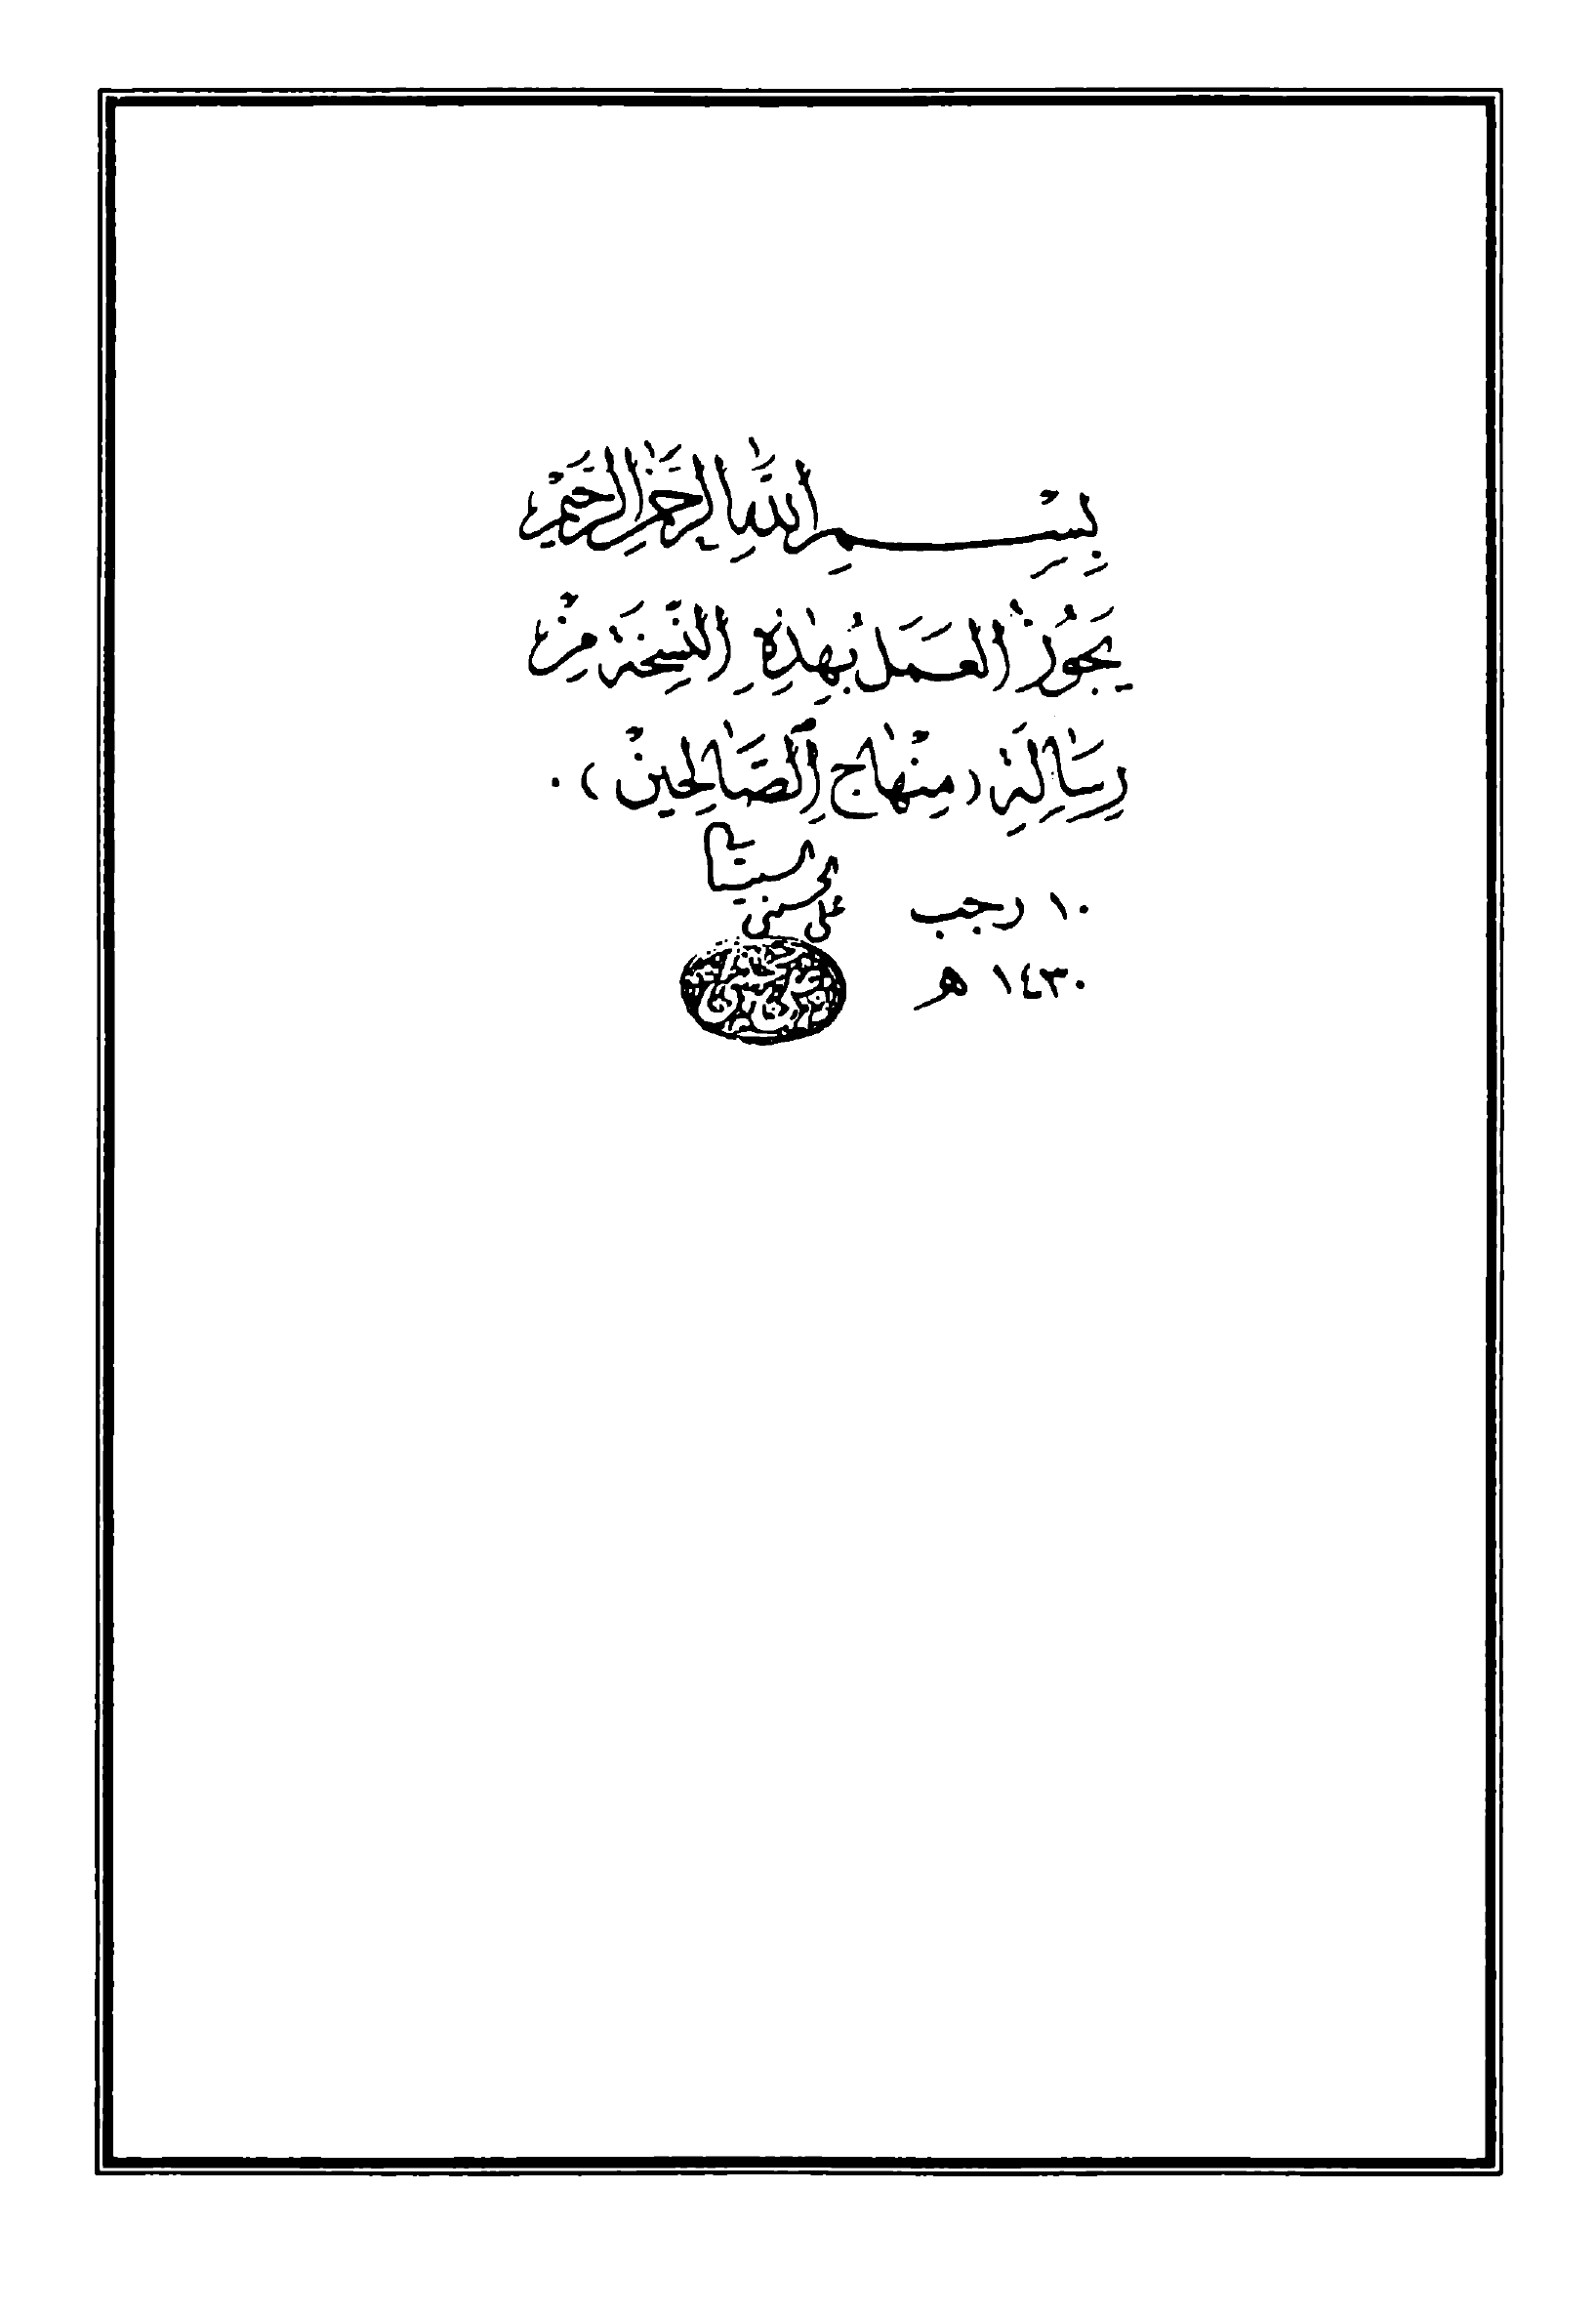 بِسْمِ اللَّهِ الرَّحْمَٰنِ الرَّحِيمِ
يَجُوزُ الْعَمَلُ بِهَٰذِهِ النُّسْخَةِ مِنْ
رِسَالَةِ (مِنْهَاج الصَّالِحِين) .
علي الحسيني السيستاني
١٠ رجب
١٤٣٠ هـ